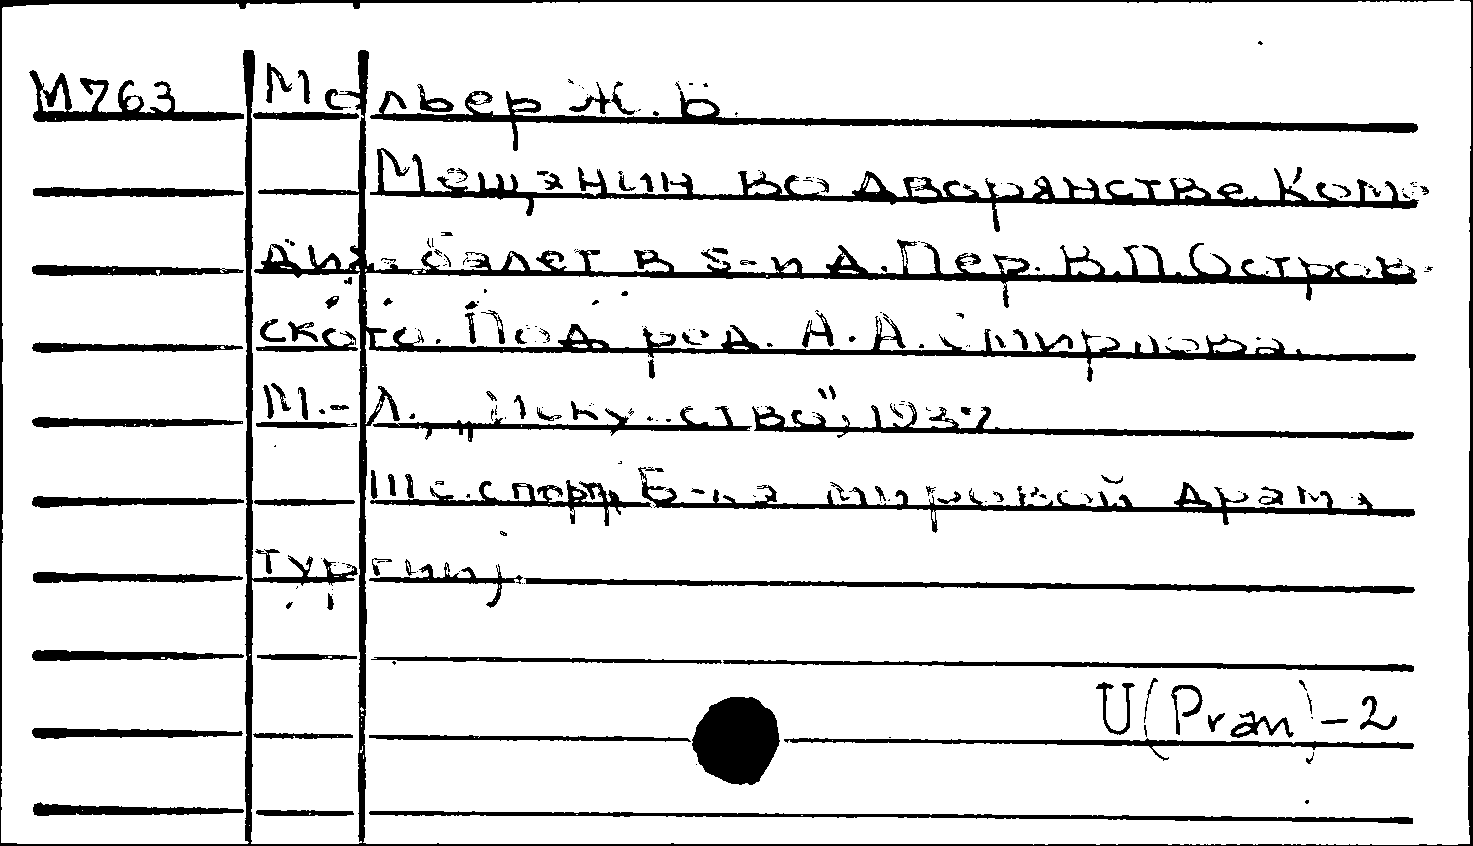 М763 Мольер Ж.Б.
Мещанин во дворянстве. Коме-
дия-балет в 5-и д. Пер. В.П. Остров-
ского. Под ред. А.А. Смирнова.
М.-Л., „Искусство", 1937
Б-ка мировой драма
тургии).
U(Pran)-2